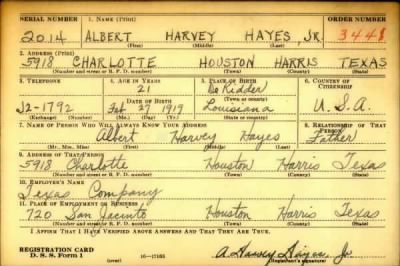 SERIAL NUMBER 1. NAME (Print) ORDER NUMBER
2014 ALBERT HARVEY HAYES, JR. 3448
(First) (Middle) (Last)
2. ADDRESS (Print)
5918 CHARLOTTE HOUSTON HARRIS TEXAS
(Number and street or R. F. D. number) (Town) (County) (State)
3. TELEPHONE 4. AGE IN YEARS 5. PLACE OF BIRTH 6. COUNTRY OF CITIZENSHIP
21 De Ridder
DATE OF BIRTH (Town or county)
J2-1792 Feb 27 1919 Louisiana U.S.A.
(Exchange) (Number) (Mo.) (Day) (Yr.) (State or country)
7. NAME OF PERSON WHO WILL ALWAYS KNOW YOUR ADDRESS 8. RELATIONSHIP OF THAT PERSON
Albert Harvey Hayes Father
(Mr., Mrs., Miss) (First) (Middle) (Last)
9. ADDRESS OF THAT PERSON
5918 Charlotte Houston Harris Texas
(Number and street or R. F. D. number) (Town) (County) (State)
10. EMPLOYER'S NAME
Texas Company
11. PLACE OF EMPLOYMENT OR BUSINESS
720 San Jacinto Houston Harris Texas
(Number and street or R. F. D. number) (Town) (County) (State)
I AFFIRM THAT I HAVE VERIFIED ABOVE ANSWERS AND THAT THEY ARE TRUE.
REGISTRATION CARD
D. S. S. Form 1 (over) 16-17105 A. Harvey Hayes, Jr.
(Registrant's signature)